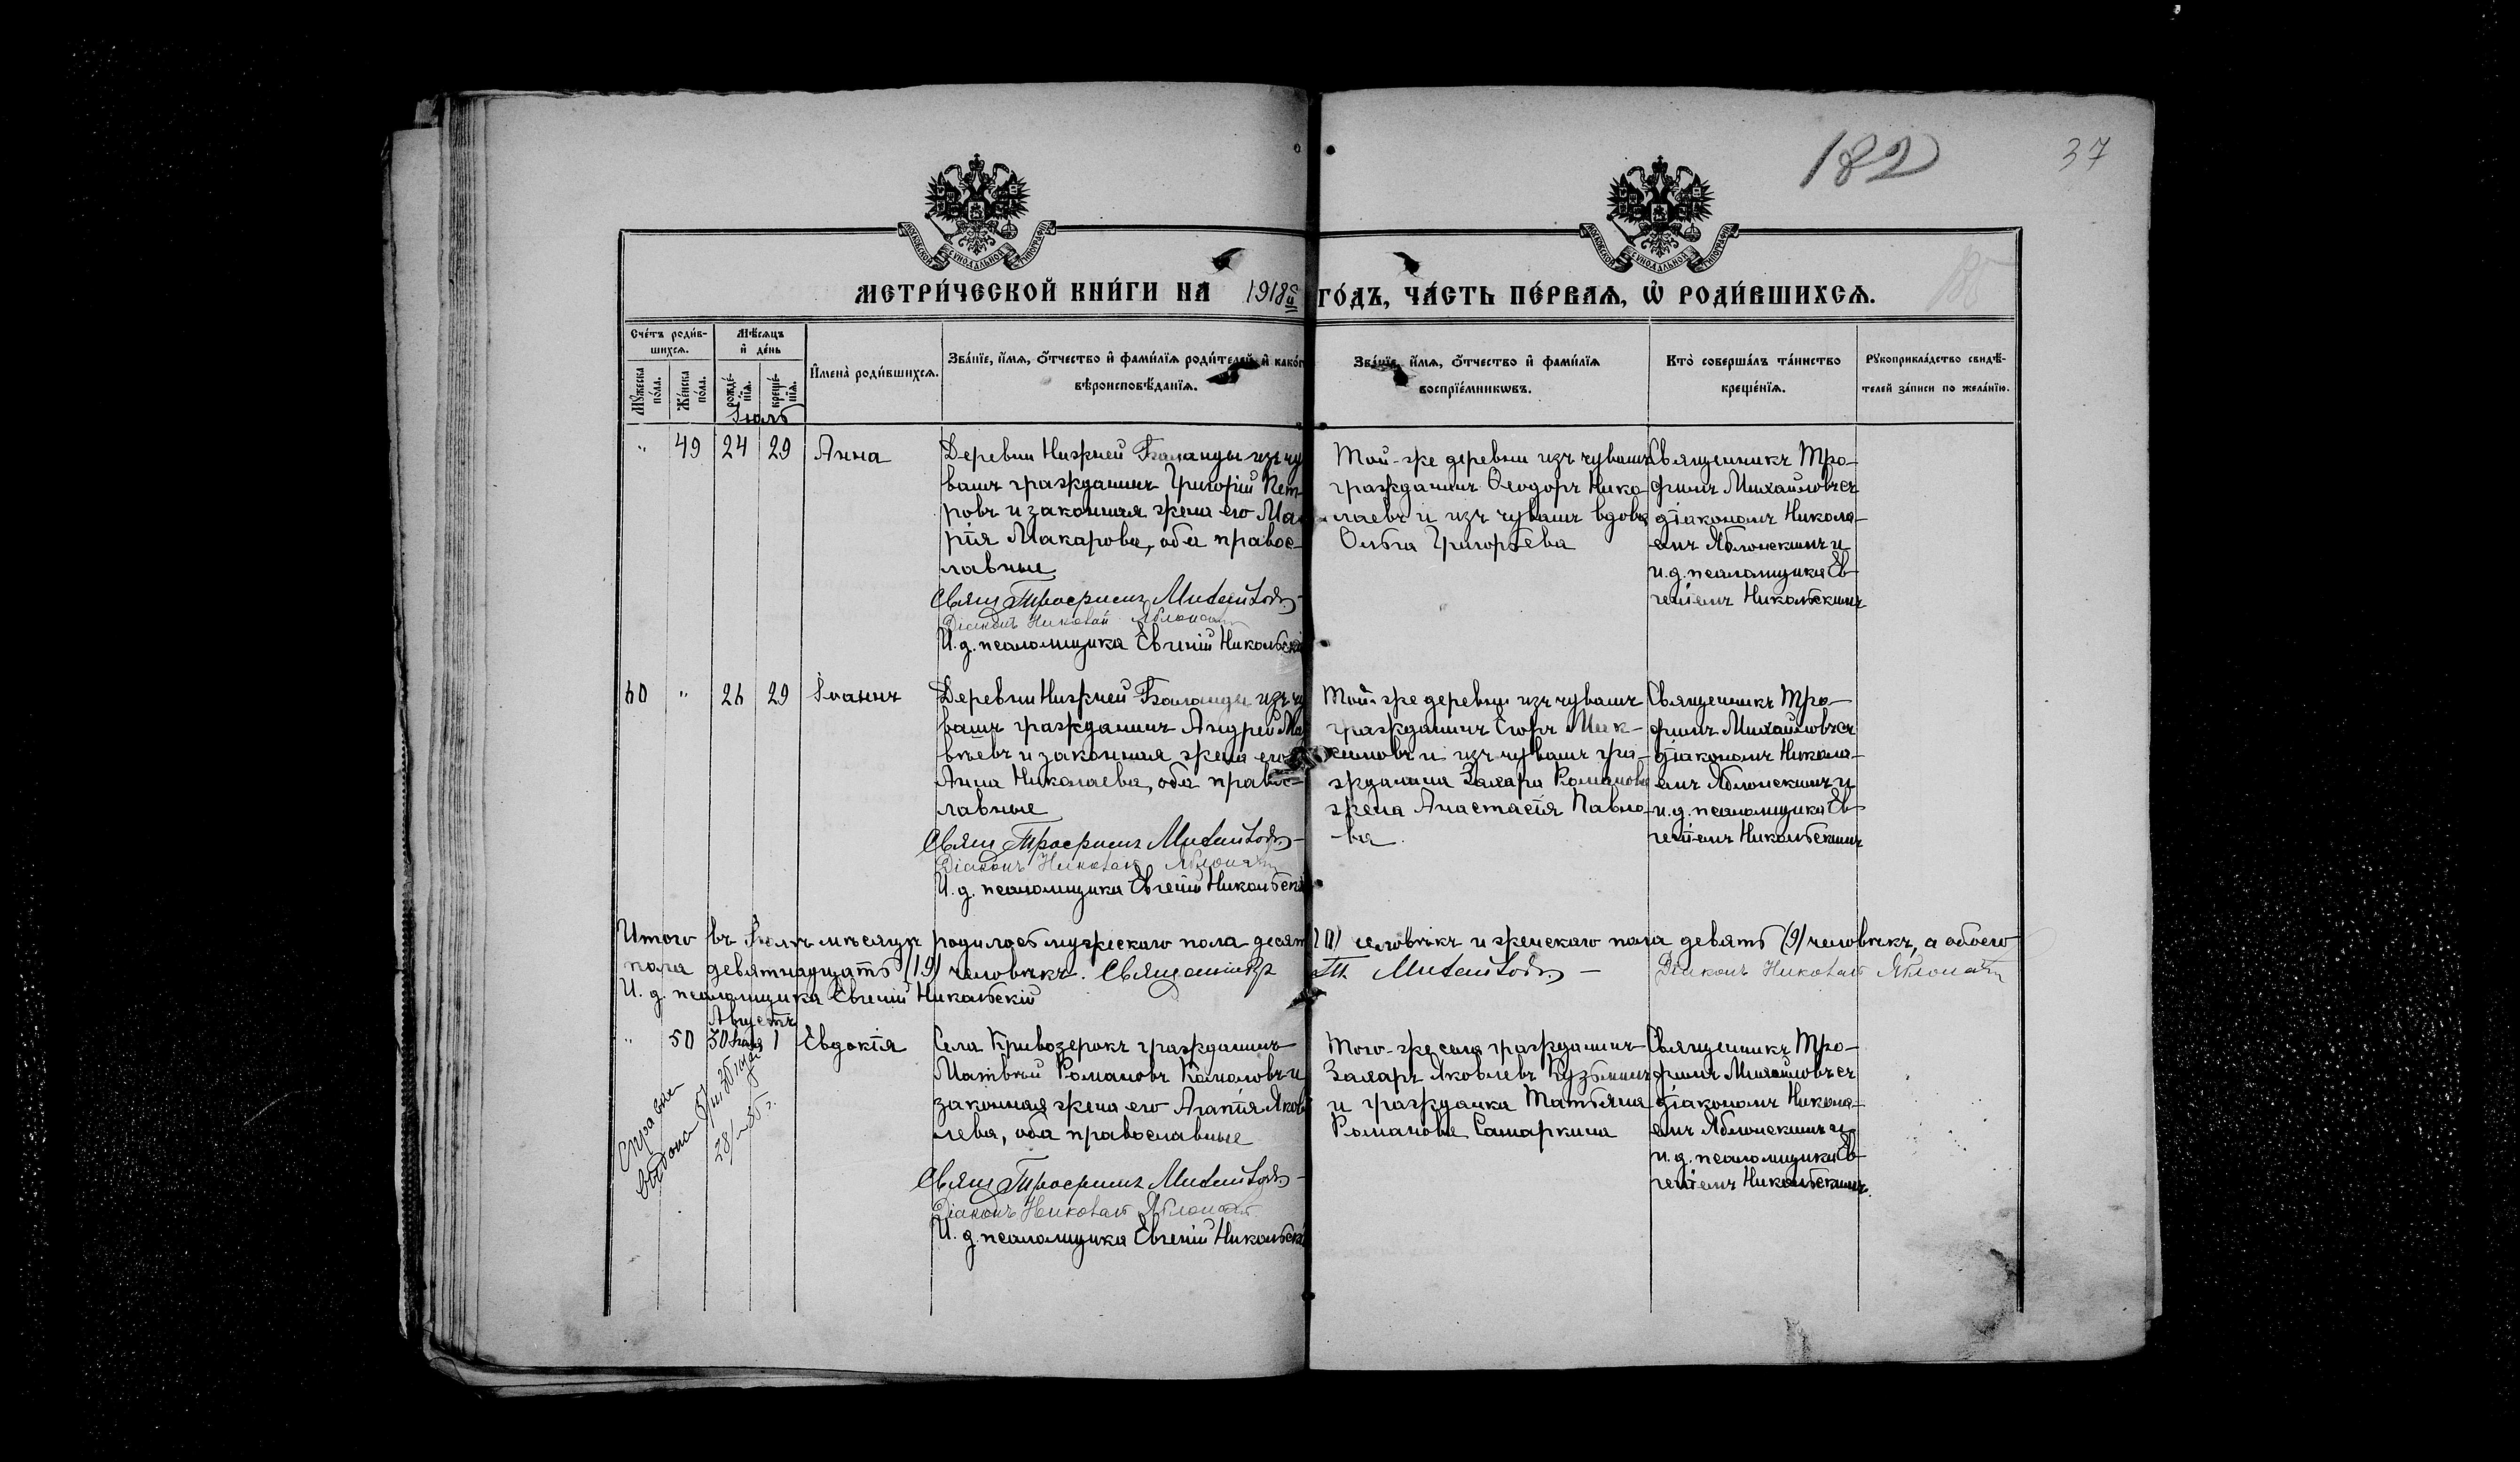 182
37
МОСКОВСКОЙ СѴНОДАЛЬНОЙ ТИПОГРАФІИ
МОСКОВСКОЙ СѴНОДАЛЬНОЙ ТИПОГРАФІИ
МЕТРИ́ЧЕСКОЙ КНИ́ГИ НА 1918й ГО́ДЪ, ЧА́СТЬ ПЕ́РВАѦ, Ѽ РОДИ́ВШИХСѦ.
Сче́тъ роди́в-
шихсѧ.
Мѣ́сѧцъ
и҆ де́нь
Мꙋ́жеска
по́ла.
Же́нска
по́ла.
рожде́-
нїѧ.
креще́-
нїѧ.
И҆мена̀ роди́вшихсѧ.
Зва́нїе, и҆́мѧ, ѻ҆́тчество и҆ фами́лїѧ роди́телей, и҆ како́гѡ
вѣроисповѣ́данїѧ.
Зва́нїе, и҆́мѧ, ѻ҆́тчество и҆ фами́лїѧ
воспрїе́мникѡвъ.
Кто̀ соверша́лъ та́инство
креще́нїѧ.
Рꙋкоприкла́дство свидѣ́-
телей за́писи по жела́нїю.
Іюль
" 49 24 29 Анна
Деревни Нижней изъ чу
вашъ гражданинъ Григорій Пет-
ровъ и законная жена его Ма-
рія Макарова, оба правос-
лавные
Свящ Трофимъ Михайловъ
Діаконъ Николай Яблонскій
И. д. псаломщика Евгеній Никольскій
Той-же деревни изъ чувашъ
гражданинъ Ѳеодоръ Нико-
лаевъ и изъ чувашъ вдова
Ольга Григорьева
Священникъ Тро-
фимъ Михайловъ съ
діакономъ Никола-
емъ Яблонскимъ и
и. д. псаломщика Ев-
геніемъ Никольскимъ
60 " 26 29 Іоаннъ
Деревни Нижней изъ чу
вашъ гражданинъ Андрей Мат
вѣевъ и законная жена его
Анна Николаева, оба правос-
лавные
Свящ Трофимъ Михайловъ
Діаконъ Николай Яблонскій
И. д. псаломщика Евгеній Никольскій
Той-же деревни изъ чувашъ
гражданинъ Егоръ Мак-
симовъ и изъ чувашъ гра-
жданина Захара Романова
жена Анастасія Павло-
ва.
Священникъ Тро-
фимъ Михайловъ съ
діакономъ Никола-
емъ Яблонскимъ и
и. д. псаломщика Ев-
геніемъ Никольскимъ
Итого въ Іюлѣ мѣсяцѣ родилось мужескаго пола десять (10) человѣкъ и женскаго пола девять (9) человѣкъ, а обоего
пола девятнадцать (19) человѣкъ. Священникъ Тр. Михайловъ Діаконъ Николай Яблонскій
И. д. псаломщика Евгеній Никольскій
Августъ
" 50 30 Іюля 1 Евдокія
Села Кривозерокъ гражданинъ
Матвѣй Романовъ и
законная жена его Агапія Яков
лева, оба православные
Свящ Трофимъ Михайловъ
Діаконъ Николай Яблонскій
И. д. псаломщика Евгеній Никольскій
Того-же села гражданинъ
Захаръ Яковлевъ Кузьминъ
и гражданка Татьяна
Романова Самаркина
Священникъ Тро-
фимъ Михайловъ съ
діакономъ Никола-
емъ Яблонскимъ и
и. д. псаломщика Ев-
геніемъ Никольскимъ.